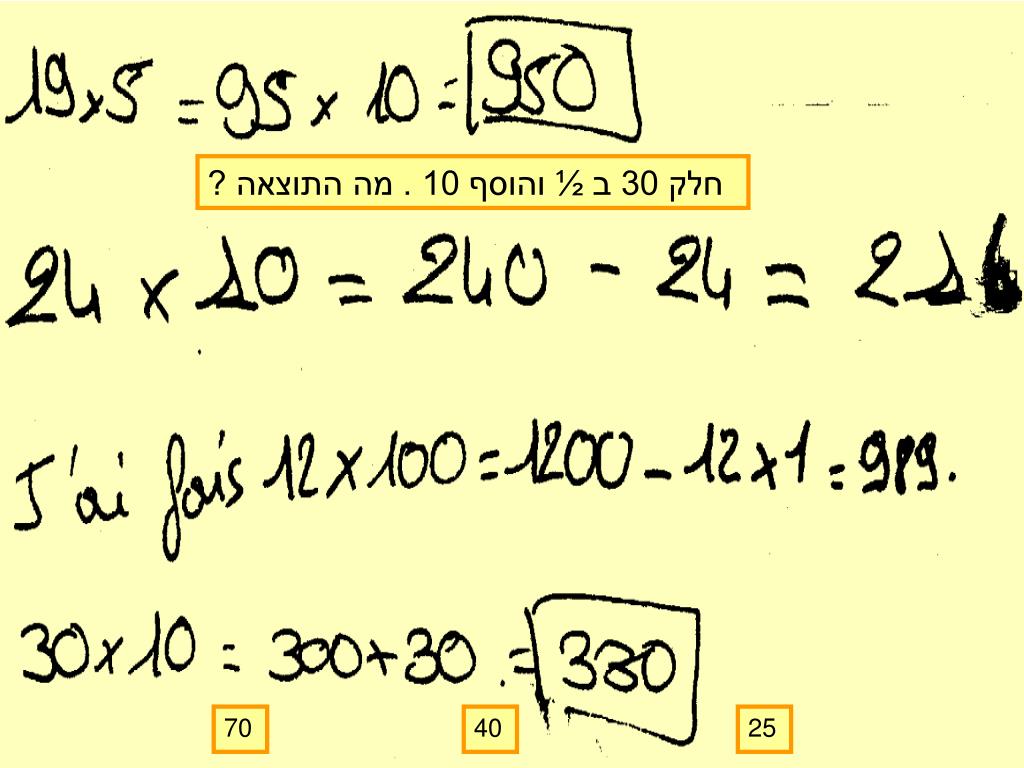 19 x 5 = 95 x 10 = 950
חלק 30 ב ½ והוסף 10 . מה התוצאה ?
24 x 10 = 240 - 24 = 216
J'ai fais 12 x 100 = 1200 - 12 x 1 = 989.
30 x 10 = 300 + 30 = 330
70 40 25